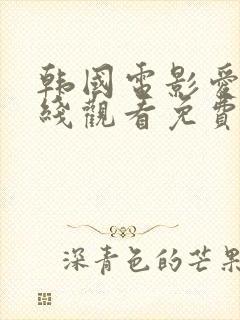 韩國电影愛
綫觀看免費
深青色的芒果